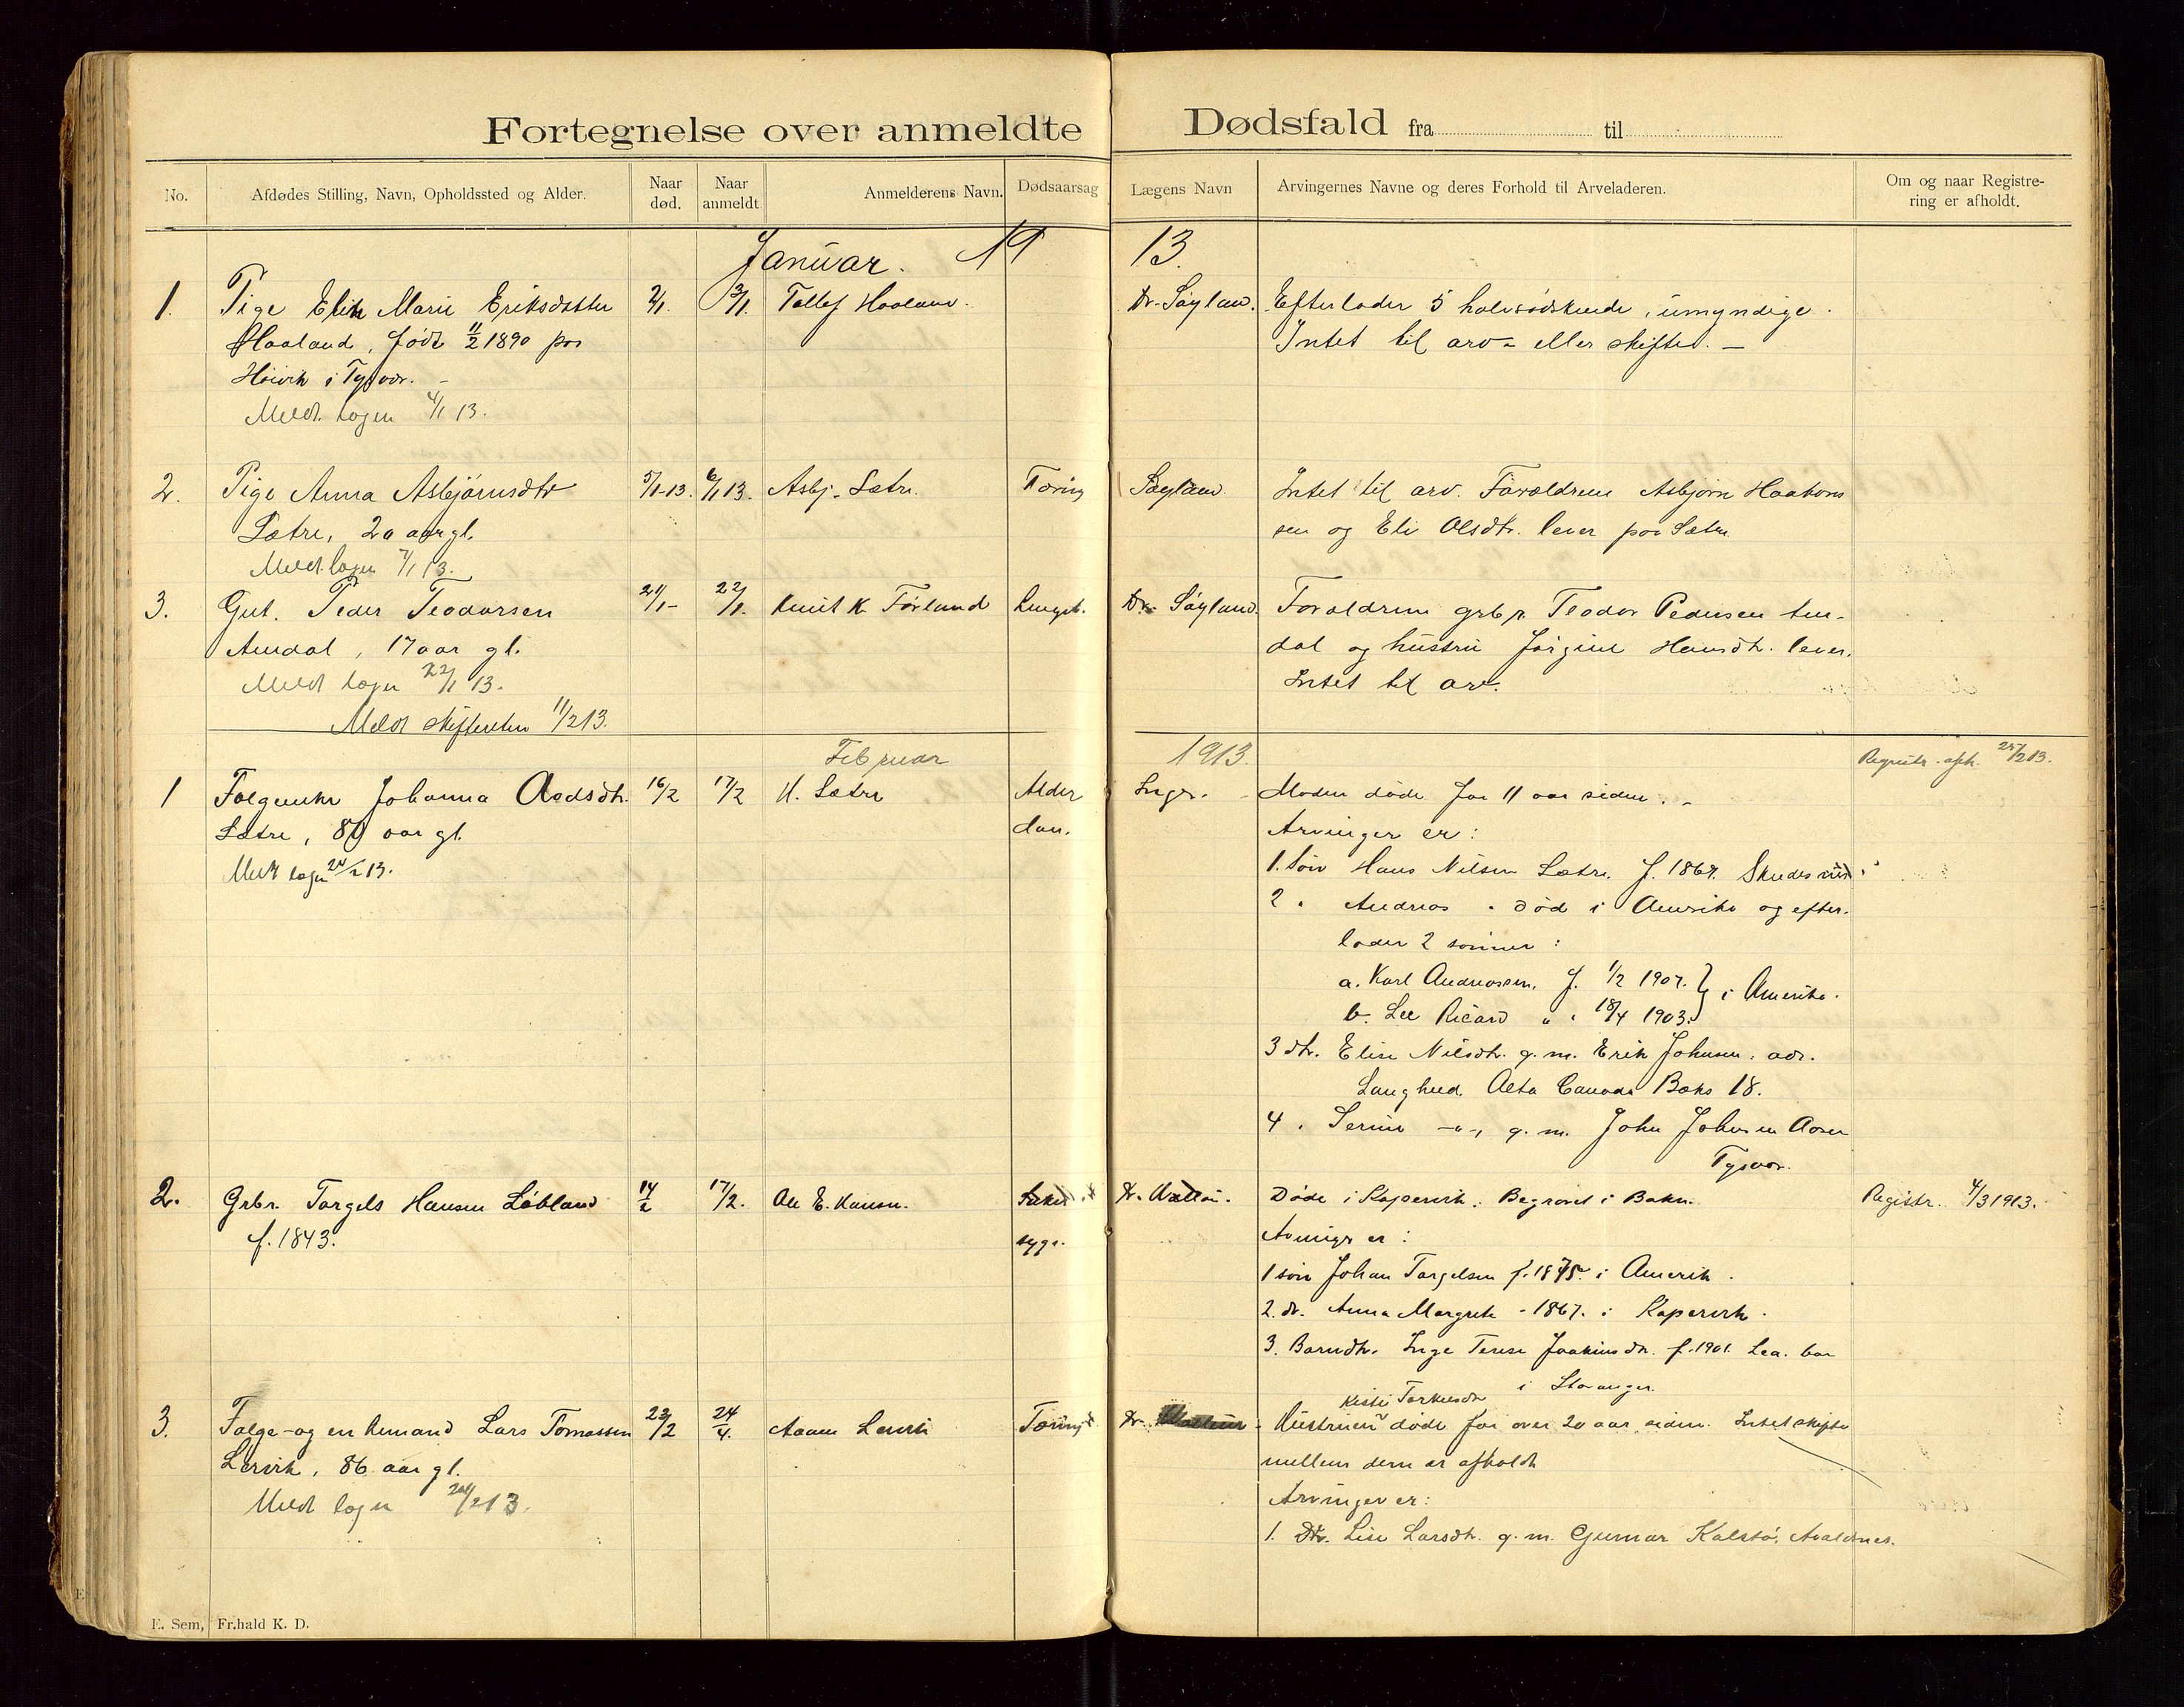 Fortegnelse over anmeldte Dødsfald fra til
No. Afdødes Stilling, Navn, Opholdssted og Alder. Naar død. Naar anmeldt. Anmelderens Navn. Dødsaarsag Lægens Navn Arvingernes Navne og deres Forhold til Arveladeren. Om og naar Registrering er afholdt.
Januar. 1913.
1. Pige Marie Eriksdatter 2/1. 3/1. Tollef Haaland. Dr. Søyland. Efterlader 5 halvsødskende, umyndige.
Haaland, født 11/2 1890 paa Intet til arv- eller skifted. —
Høivik i Tysvær. —
Meldt 4/1 13.
2. Pige Anna Asbjørnsdtr 5/1-13. 6/1 13. Asbj. Sætre. Tæring Søyland. Intet til arv. Forældrene Asbjørn Haakons
Sætre, 20 aar gl. sen og Eli Olsdtr. lever paa Sætre
Meldt 7/1 13.
3. Gut. Peder Teodorsen 21/1- 22/1. Knut K. Førland Lungeb. Dr. Søyland. Forældrene grbr. Teodor Pedersen Am-
Amdal, 17 aar gl. dal og hustru Jørgine Hansdtr. lever.
Meldt 22/1 13. Intet til arv.
Meldt skifteretten 11/2 13.
Februar 1913. Registr. afh. 25/2 13.
1 Folgeenke Johanna Aadsdtr. 16/2 17/2 H. Sætre Alder Ingen. Manden døde for 11 aar siden. -
Sætre, 80 aar gl. dom. Arvinger er:
Meldt 24/2 13. 1. Søn Hans Nilsen Sætre. f. 1867.
2 " Andreas " død i Amerika og efter-
lader 2 sønner:
a. Karl Andreassen. f. 1/2 1907. } i Amerika.
b. Lee Ricard " " 18/4 1903.
3 dtr. Elise Nilsdtr. g. m. Erik Johnsen. adr.
Alta Canada Boks 18.
4 " Serine -"-, g. m. John Johnsen
Tysvær.
2. Grbr. Torgels Hansen Løvland 14/2 17/2. Ole E. Hansen. Døde i Kopervik. Begravet i Bokn. Registr. 4/3 1913.
f. 1843. syge. Arvinger er:
1 søn Johan Torgelsen f. 1875 i Amerik.
2. dr. Anna Margrete - 1867. i Kopervik.
3. Barndtr. Inge Terese Joakimsdtr. f. 1901.
i Stavanger.
3. Folge- og enkemand Lars Tomassen 23/2 24/4. Lervik Tæring Dr. Hustruen døde for over 20 aar siden. Intet skifte
Lervik, 86 aar gl. mellem dem er afholdt
Meldt 24/2 13. Arvinger er:
1. Dtr. Lise Larsdtr. g. m. Gunnar Kalstø, Avaldsnes.
E. Sem, Fr.hald K. D.